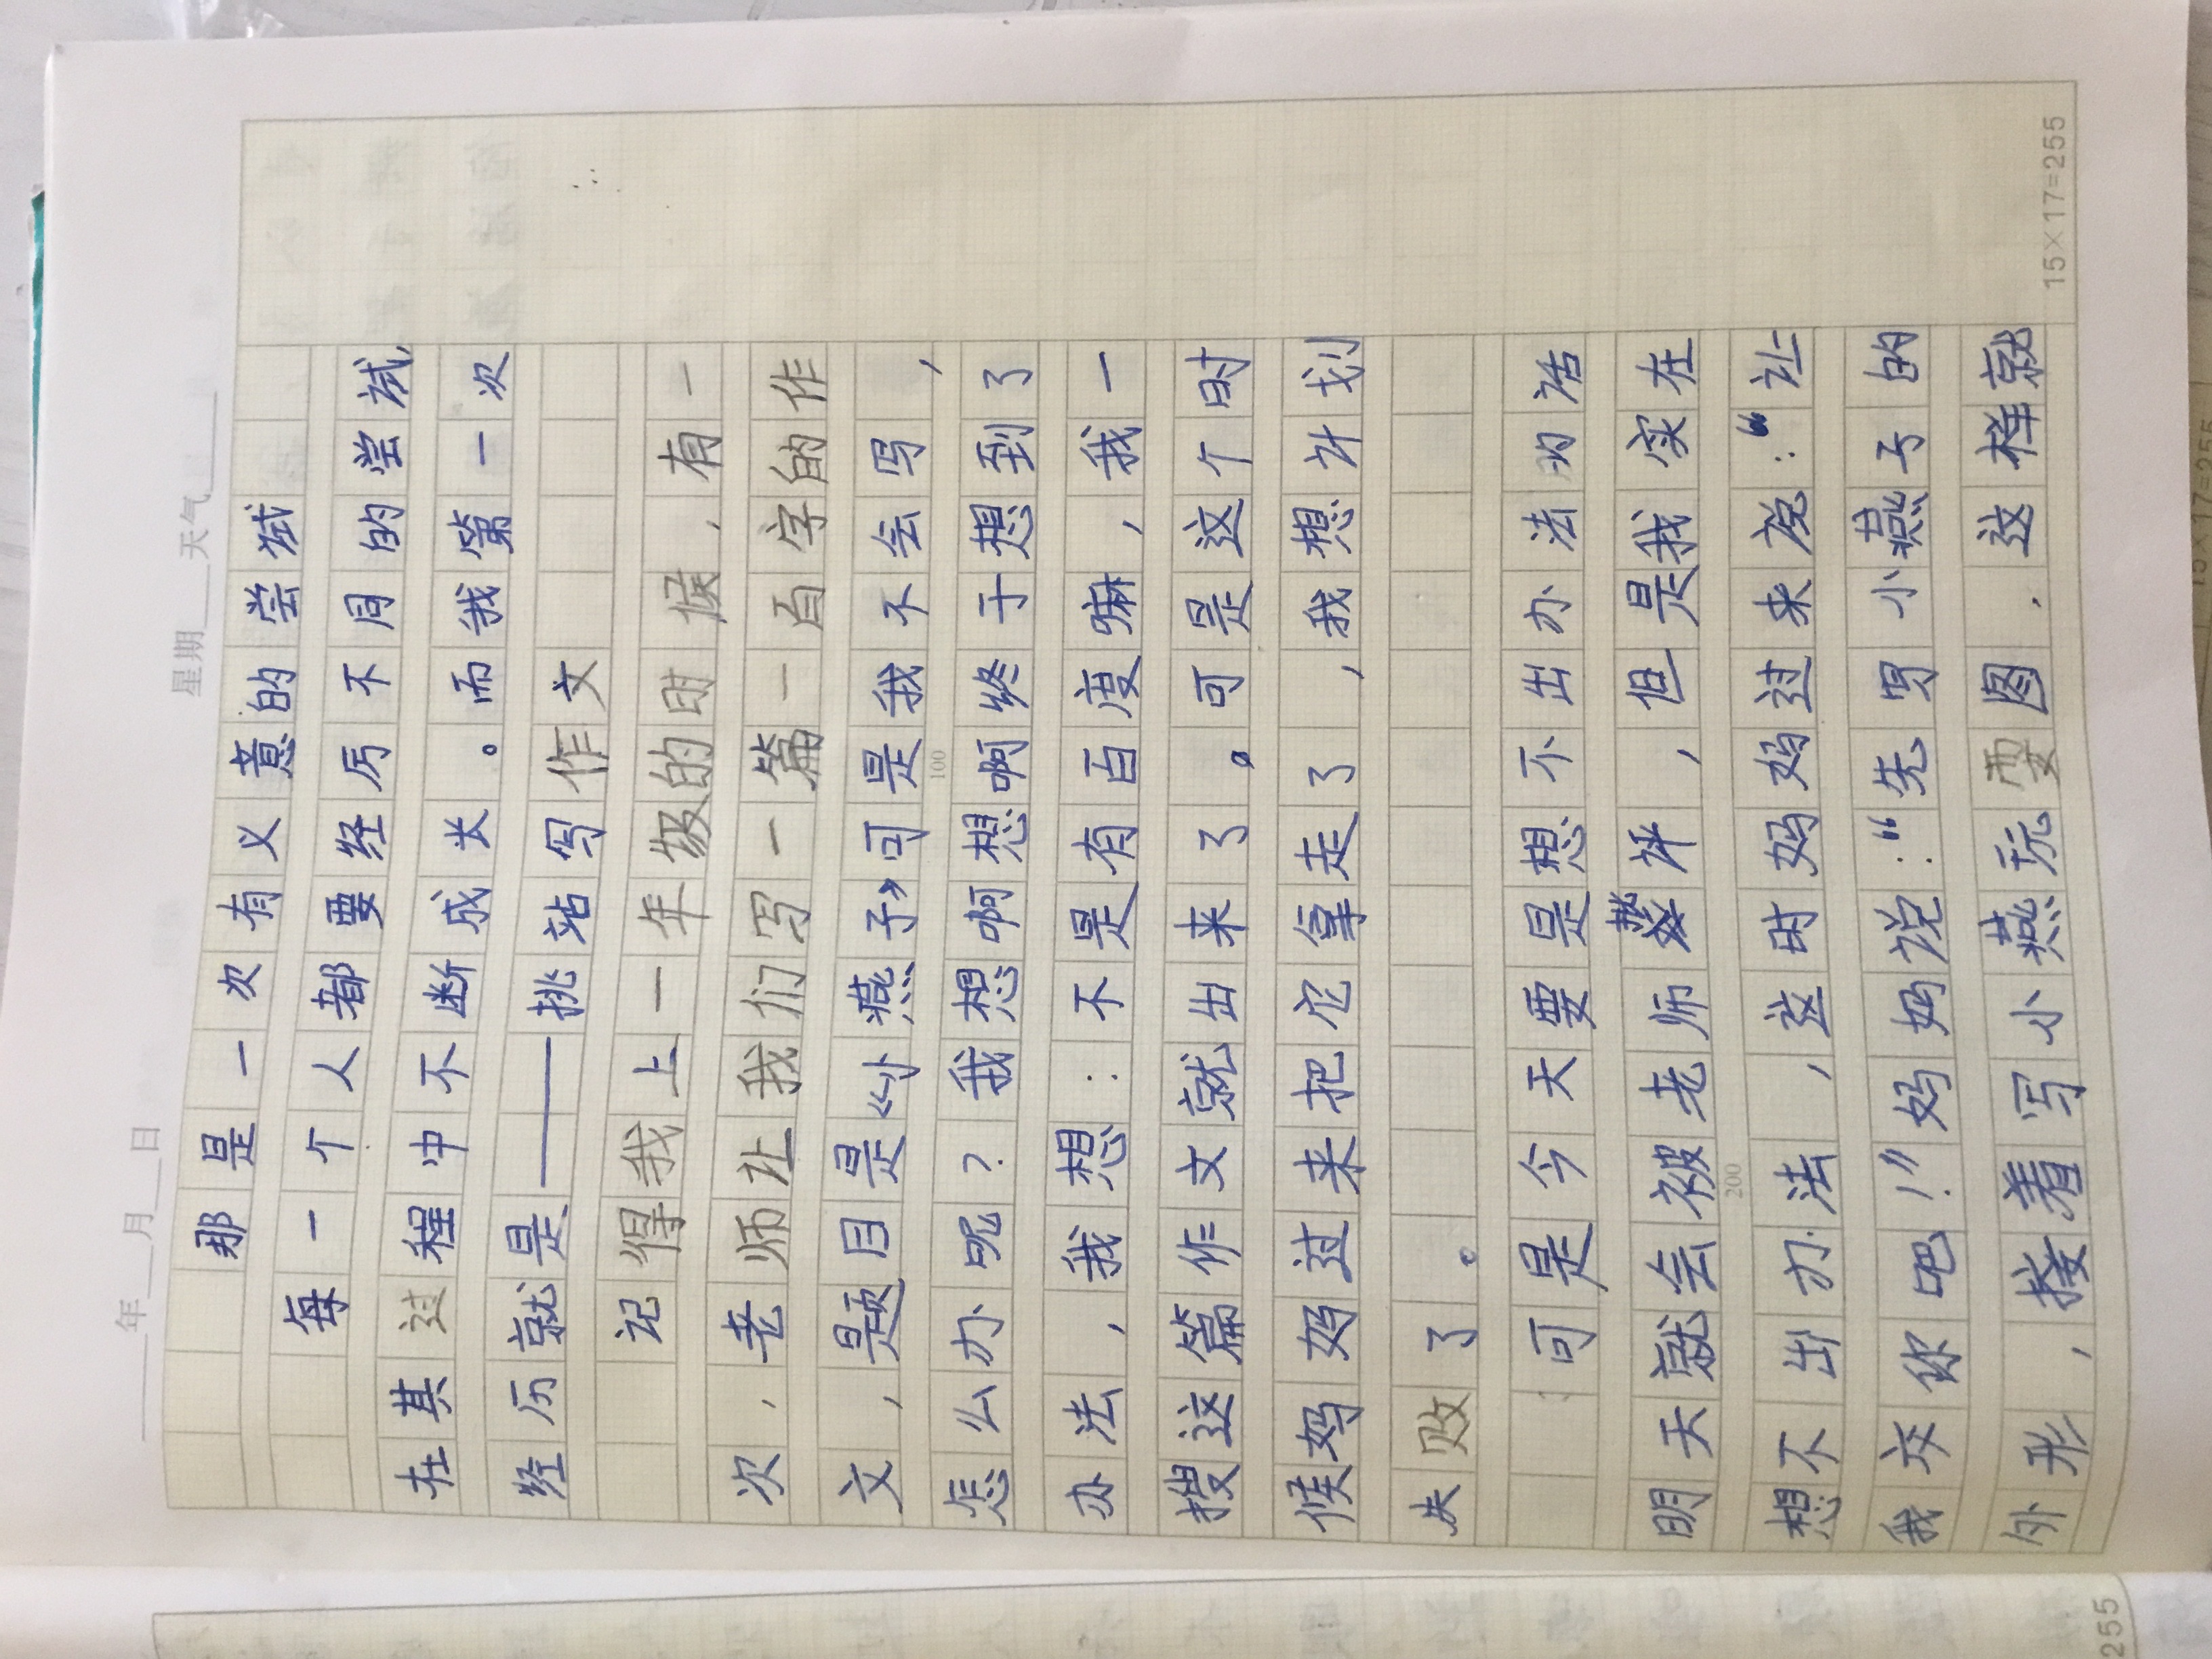 ____年____月____日 星期____天气____
那是一次有义意的尝试
每一个人都要经历不同的尝试,
在其过程中不断成长。而我第一次
经历就是——挑站写作文
记得我上一年级的时候,有一
次,老师让我们写一篇一百字的作
文,是题目是《小燕子》可是我不会写,
100
怎么办呢?我想啊想啊终于想到了
办法,我想:不是有百度嘛,我一
搜这篇作文就出来了。可是这个时
候妈妈过来把它拿走了,我想计划
失败了。
可是今天要是想不出办法的话
明天就会被老师批评,但是我实在
200
想不出办法,这时妈妈过来说:“让
我交你吧!”妈妈说:“先写小燕子的
外形,接着写小燕玩耍图.这样就
15×17=255
255
15×17=255